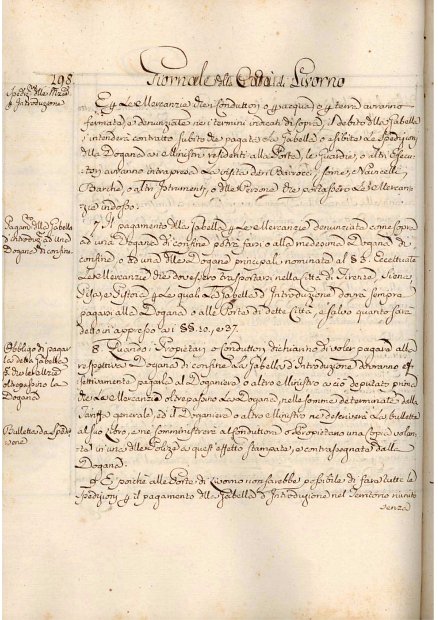 198. Giornale della Città di Livorno
Spedizne delle Merzie
p Introduzione
E p Le Mercanzie dei Conduttori o p acqua, o p terra avranno
fermata, e denunziate nei termini indicati di sopra, il debito della Gabella
s'intenderà contratto subito che pagata la Gabella, o esibite le Spedizioni
della Dogana ai Ministri residenti alla Porta, le Guardie, o altri Esecu-
tori avranno intrapresa la visita dei Barrocci, some, Navicelli
Barche, o altri Istrumenti, o delle Persone che portassero le Mercan-
zie indosso.
Pagamto della Gabella
d'introduzne ad una
Dogana di confine.
7. Il pagamento della Gabella p Le Mercanzie denunziate come sopra
ad una Dogana di confine potrà farsi o alla medesima Dogana di
confine, o ad una delle Dogane principali nominate al § 3. Eccettuate
Le Mercanzie che dovessero trasportarsi nella Città di Firenze, Siena,
Pisa, e Pistoia, p Le quali la Gabella d'Introduzione dovrà sempre
pagarsi alla Dogana, o alle Porte di dette Città, e salvo quanto sarà
detto in appresso ai §§. 10., e 27.
Obbligo di pagar
la detta Gabella
p. che le Merzie
oltrepassino la
Dogana
8. Quando i Proprietari, o Conduttori dichiarino di voler pagare alla
respettiva Dogana di confine la Gabella d'Introduzione dovranno ef-
fettivamente pagarla al Doganiere, o altro Ministro a ciò deputato prima
che le Mercanzie oltrepassino La Dogana, nelle somme determinate dalla
Tariffa generale, ed il Doganiere, o altro Ministro ne descriverà la bulletta
Bulletta da Spedi-
zione
al suo Libro, e ne somministrerà al Conduttore, o Proprietario una copia volan-
te in una delle Polizze a quest'effetto stampate, e contrassegnate dalla
Dogana.
9. E poichè alle Porte di Livorno non sarebbe possibile di fare tutte le
Spedizioni p il pagamento della Gabella d'Introduzione nel Territorio riunito
senza